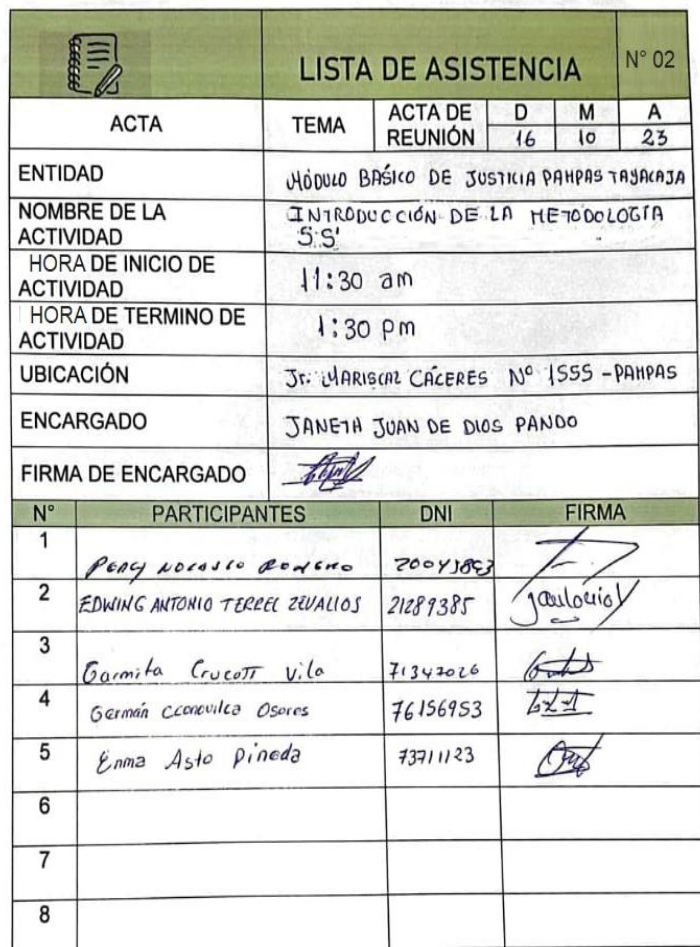 LISTA DE ASISTENCIA
N° 02
ACTA
TEMA
ACTA DE REUNIÓN
D M A
16 10 23
ENTIDAD
MÓDULO BASICO DE JUSTICIA PAMPAS TAYACAJA
NOMBRE DE LA ACTIVIDAD
INTRODUCCIÓN DE LA METODOLOGÍA
5'S'
HORA DE INICIO DE ACTIVIDAD
11:30 am
HORA DE TERMINO DE ACTIVIDAD
1:30 pm
UBICACIÓN
Jr. MARISCAL CÁCERES Nº 1555 - PAMPAS
ENCARGADO
JANETH JUAN DE DIOS PANDO
FIRMA DE ENCARGADO
N° PARTICIPANTES DNI FIRMA
1 PERCY ROMERO
2 EDWING ANTONIO TERREL ZEVALLOS 21289385
3 Vila 71347026
4 Germán Ccanovilca Osores 76156953
5 Enma Asto Pineda 73711123
6
7
8